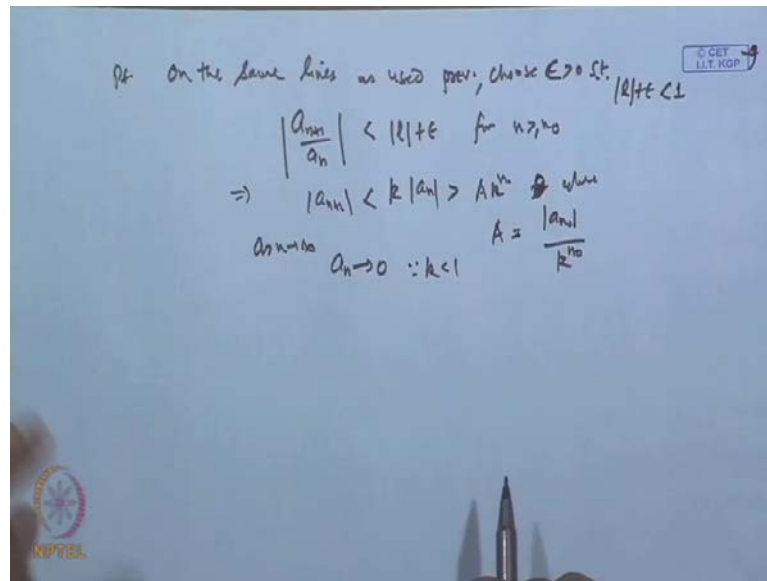 Pf On the same lines as used prev., choose ε>0 s.t. |l|+ε <1
© CET
I.I.T. KGP
|a_{n+1}/a_n| < |l|+ε for n≥n_0
⇒ |a_{n+1}| < k |a_n| > A k^n where
A = |a_{n_0}|/k^{n_0}
as n→∞ a_n→0 ∵ k<1
NPTEL